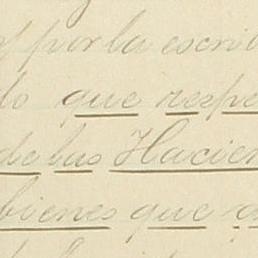 por la escrib
lo que respe
de las Hacien
bienes que